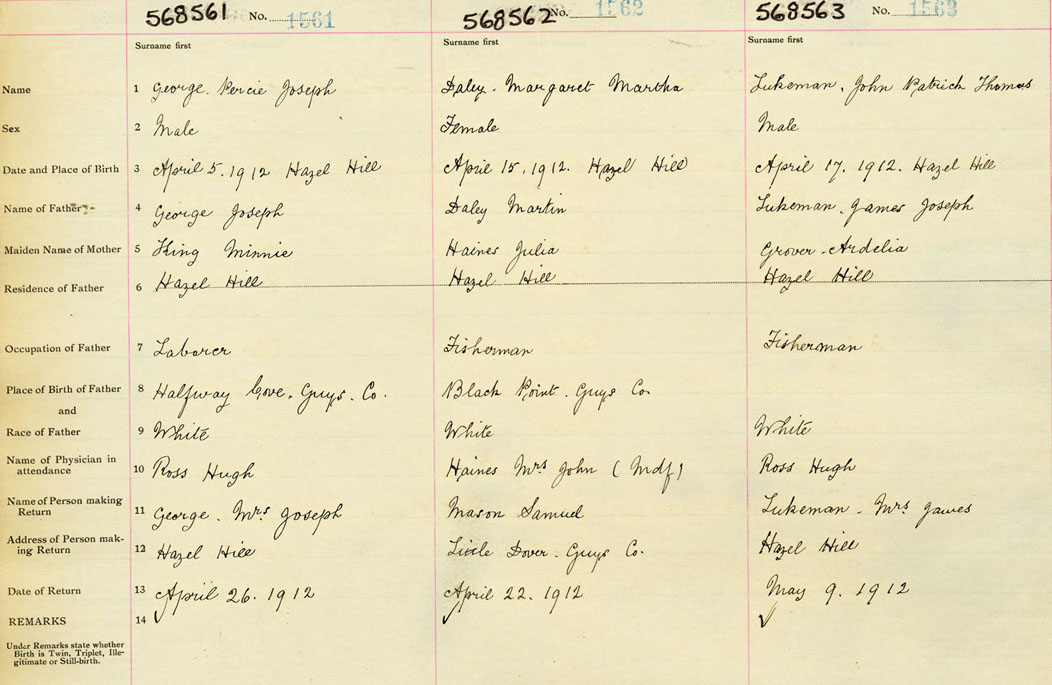 568561 No. 1561 568562 No. 1562 568563 No. 1563
Surname first Surname first Surname first
Name 1 George. Percie Joseph Daley. Margaret Martha Lukeman. John Patrick Thomas
Sex 2 Male Female Male
Date and Place of Birth 3 April 5. 1912 Hazel Hill April 15, 1912. Hazel Hill April 17. 1912. Hazel Hill
Name of Father 4 George Joseph Daley Martin Lukeman. James Joseph
Maiden Name of Mother 5 King Minnie Haines Julia Grover - Ardelia
Residence of Father 6 Hazel Hill Hazel Hill Hazel Hill
Occupation of Father 7 Laborer Fisherman Fisherman
Place of Birth of Father 8 Halfway Cove. Guys. Co. Black Point. Guys Co.
and
Race of Father 9 White White White
Name of Physician in
attendance 10 Ross Hugh Haines Mrs John (Mdf) Ross Hugh
Name of Person making
Return 11 George. Mrs Joseph Mason Samuel Lukeman - Mrs James
Address of Person mak-
ing Return 12 Hazel Hill Little Dover. Guys Co. Hazel Hill
Date of Return 13 April 26. 1912 April 22. 1912 May 9. 1912
REMARKS 14 ✓ ✓ ✓
Under Remarks state whether
Birth is Twin, Triplet, Ille-
gitimate or Still-birth.